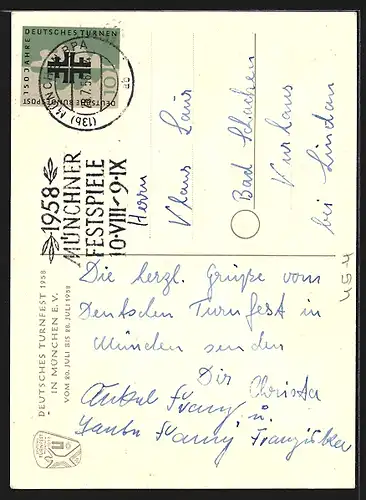 150 JAHRE DEUTSCHES TURNEN
10
DEUTSCHE BUNDESPOST
(13b) MÜNCHEN BPA
1958
MÜNCHNER
FESTSPIELE
10·VIII-9·IX
Herrn
Klaus Lais
Bad Schachen
Kurhaus
bei Lindau
Die herzl. Grüße vom
Deutschen Turnfest in
München senden
Dir Christa
Onkel Franz u.
Tante Fanny Franziska
DEUTSCHES TURNFEST 1958
IN MÜNCHEN E.V.
VOM 20. JULI BIS 28. JULI 1958